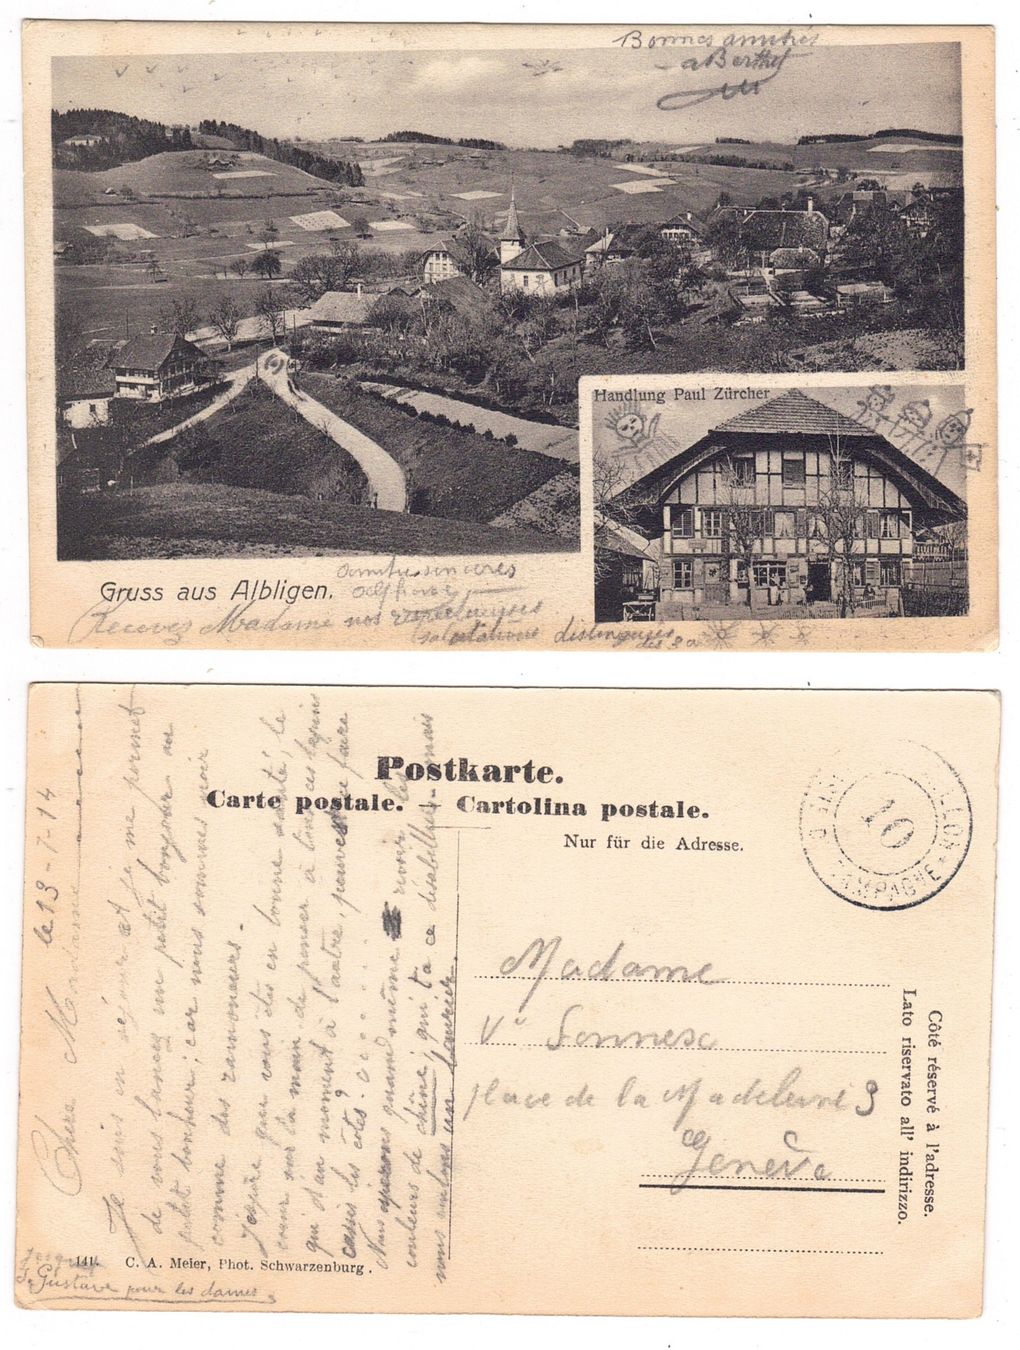 Bonnes amitiés
a Berthe
Handlung Paul Zürcher
Gruss aus Albligen.
amitie sinceres
Alphonse
Recevez Madame nos
salutations distinguées
des 3 a
Postkarte.
Carte postale. Cartolina postale.
Nur für die Adresse.
10
CAMPAGNE
Madame
Vᵉ Sonnesc
place de la Madeleine 9
Genève
Côté réservé à l'adresse.
Lato riservato all' indirizzo.
le 13-7-14
Chère Madame
Je suis en séjour et je me permet
de vous lancer un petit bonjour au
petit bonheur; car nous sommes noir
comme des ramoneurs.
J'espère que vous êtes en bonne santé, le
coeur sur la main de penser à tous ces lapins
qui d'un moment à l'autre, peuvent se faire
casser les côtes?
Nous quand même revoir les
couleurs de chêne, qui t'a ce mais
nous un laurier.
Gustave pour les dames
141. C. A. Meier, Phot. Schwarzenburg.